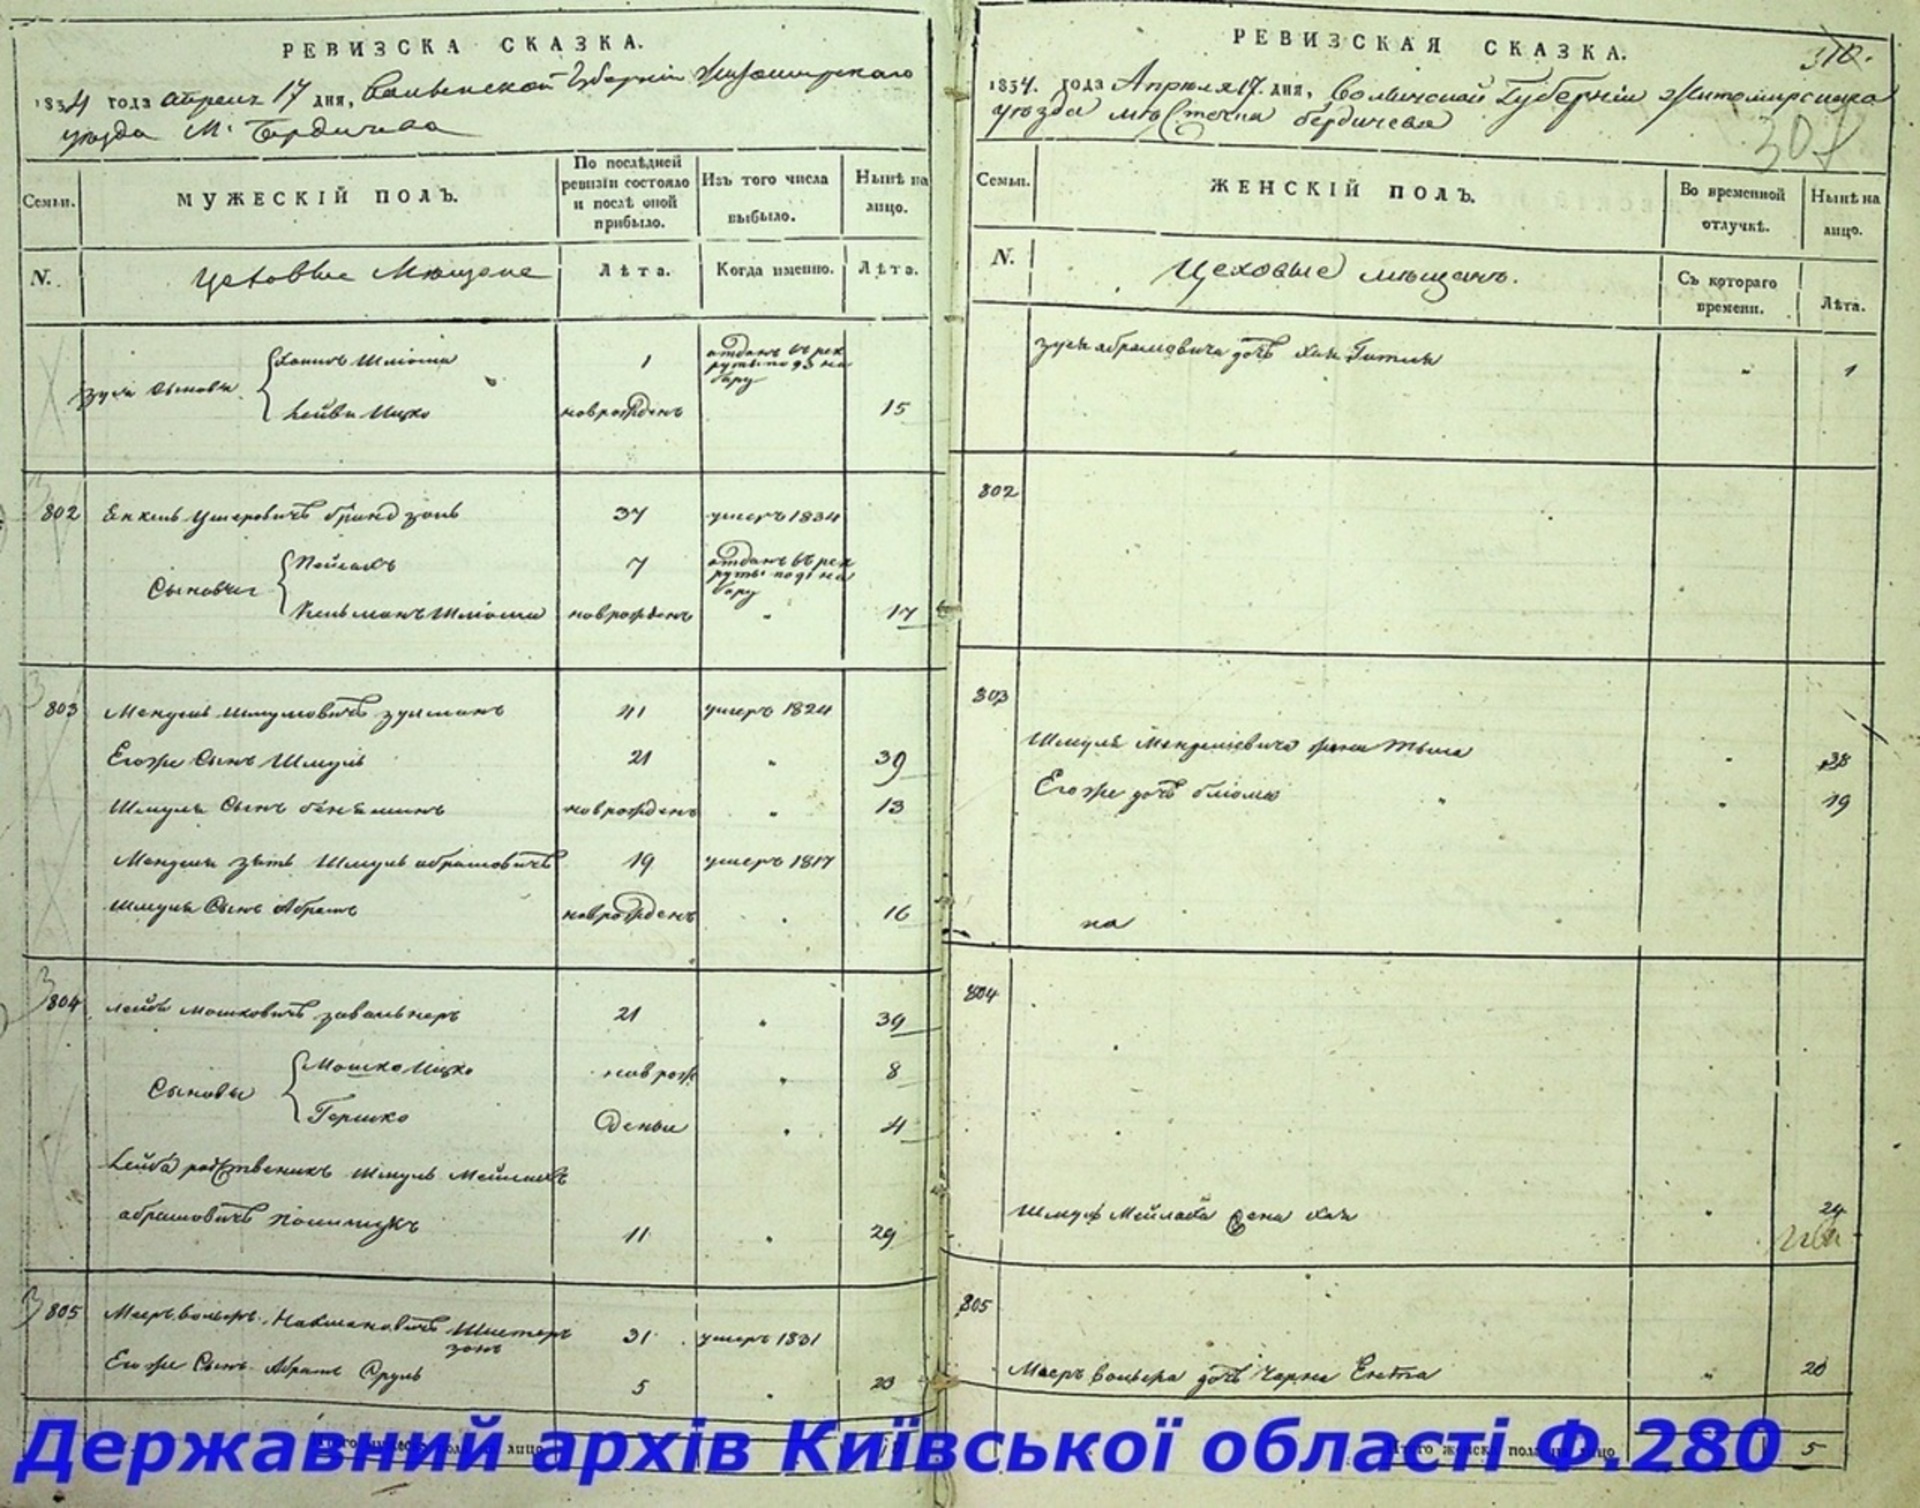 РЕВИЗСКА СКАЗКА.
1834 года апреля 17 дня, Волынской Губернии Житомирского
уезда М. Бердичева
Семьи.
МУЖЕСКІЙ ПОЛЪ.
По послѣдней ревизіи состояло и послѣ оной прибыло.
Изъ того числа выбыло.
Нынѣ на лицо.
N.
Цеховые Мещане
Лѣта.
Когда именно.
Лѣта.
Зуся Сыновья
Шліома
1
отданъ въ рек
руты по 93 на
бору
Лейби Ицко
новрожденъ
15
802
Енкель Ушеровичъ
37
умеръ 1834
Сыновья
Пейсахъ
7
отданъ въ рек
руты по на
бору
Кельманъ Шліома
новрожденъ
"
17
803
Мендель Шмулиовичъ Зусманъ
41
умеръ 1824
Егоже Сынъ Шмуль
21
"
39
Шмуля Сынъ Бениаминъ
новрожденъ
"
13
Менделя зять Шмуль Абрамовичъ
19
умеръ 1817
Шмуля Сынъ Абрамъ
новрожденъ
"
16
804
Лейба Мошковичъ
21
"
39
Сыновья
Мошко Ицко
новрож
"
8
Гершко
дены
"
4
Лейба родственикъ Шмуль Мейлахъ
Абрамовичъ
11
"
29
805
Меер Вольфъ Нахмановичъ Шустер
зонъ
31
умеръ 1831
Егоже Сынъ Абрамъ Сруль
5
"
23
Итого мужеска пола на лицо
РЕВИЗСКАЯ СКАЗКА.
310.
1834. года Апреля 17. дня, Волынской Губерніи Житомирскаго
уезда мѣстечка Бердичева
307
Семьи.
ЖЕНСКІЙ ПОЛЪ.
Во временной отлучкѣ.
Нынѣ на лицо.
N.
Цеховые мещанъ.
Съ котораго времени.
Лѣта.
Зуся Абрамовича дочь Хая Гитля
"
1
802
803
Шмуля Менделіевича жена
"
38
Егоже дочь Бліома
"
"
19
804
Шмуля Мейлаха жена Хая
"
24
805
Меер Вольфа дочь Черна Ента
"
20
Итого женска пола на лицо
5
Державний архів Київської області Ф.280